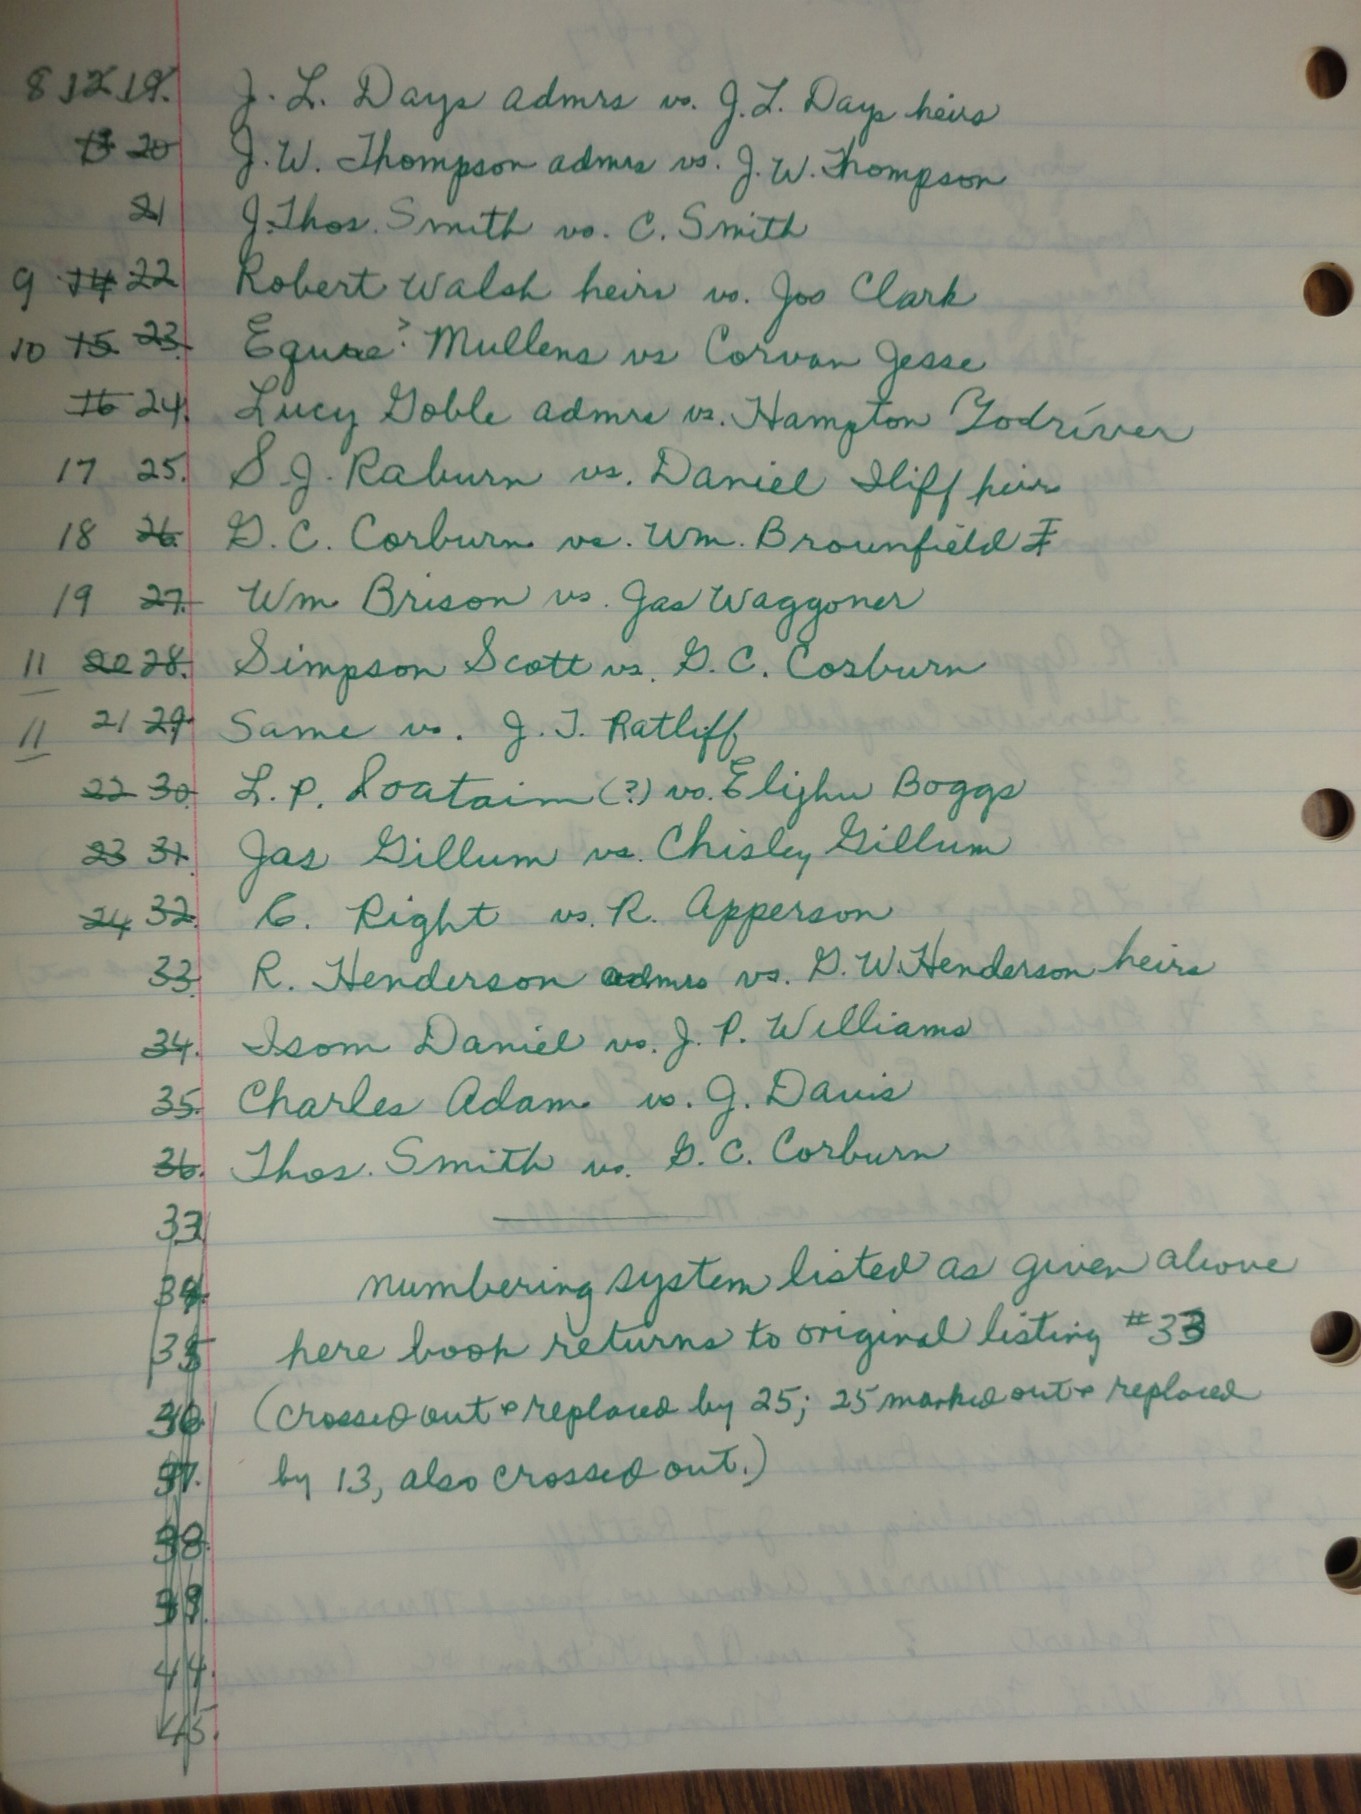 8 12 19. J. L. Days admrs vs. J. L. Days heirs
13 20 J. W. Thompson admrs vs. J. W. Thompson
21 J. Thos. Smith vs. C. Smith
9 14 22 Robert Walsh heirs vs. Jos Clark
10 15 23. Equae? Mullens vs Corvan Jesse
16 24. Lucy Goble admrs vs. Hampton Yodriver
17 25. S. J. Raburn vs. Daniel Iliff heirs
18 26. G. C. Corburn vs. Wm. Brounfield
19 27. Wm Brison vs. Jas Waggoner
11 20 28. Simpson Scott vs. G. C. Cosburn
11 21 29 Same vs. J. T. Ratliff
22 30. L. P. Soataim (?) vs. Elijhu Boggs
23 31. Jas Gillum vs. Chisley Gillum
24 32. C. Right vs. R. Apperson
33. R. Henderson admrs vs. G. W. Henderson heirs
34. Isom Daniel vs. J. P. Williams
35. Charles Adam vs. J. Davis
36. Thos. Smith vs. G. C. Corburn
33
34. numbering system listed as given above
35 here book returns to original listing #33
36 (crossed out & replaced by 25; 25 marked out & replaced
37. by 13, also crossed out.)
38.
39.
44.
45.